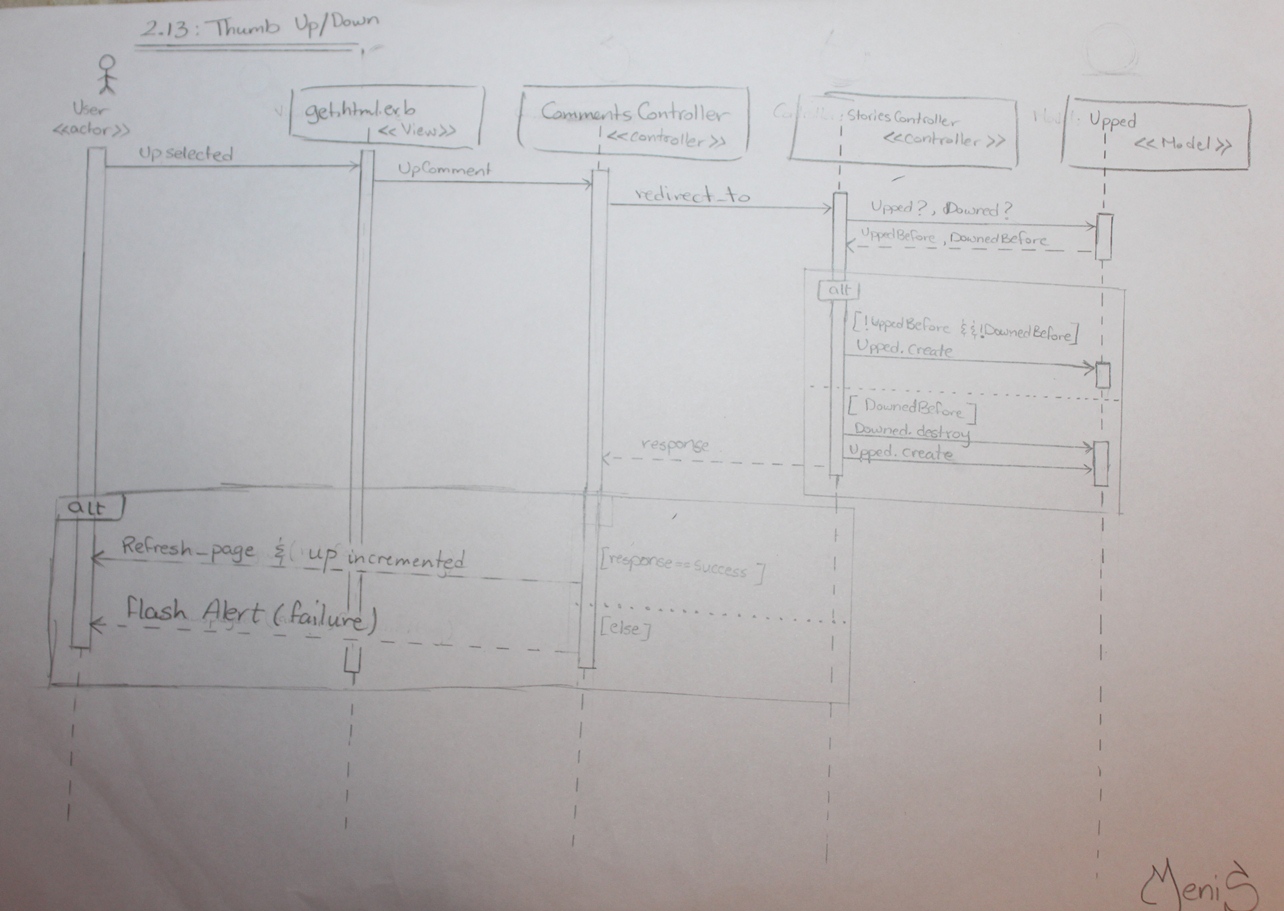 2.13: Thumb Up/Down
User
<<actor>>
get.html.erb
<<View>>
CommentsController
<<controller>>
StoriesController
<<controller>>
Upped
<<Model>>
Up selected
UpComment
redirect_to
Upped?, Downed?
UppedBefore, DownedBefore
alt
[!UppedBefore && !DownedBefore]
Upped.create
[DownedBefore]
Downed.destroy
Upped.create
response
alt
[response==success]
Refresh_page &( up incremented
[else]
Flash Alert (failure)